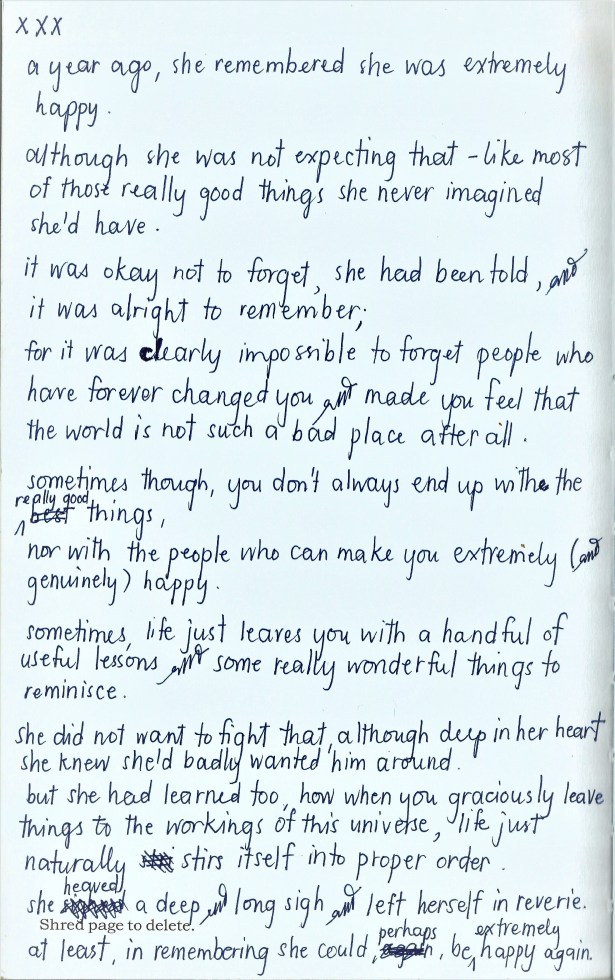 xxx
a year ago, she remembered she was extremely
happy.
although she was not expecting that - like most
of those really good things she never imagined
she'd have.
it was okay not to forget, she had been told, and
it was alright to remember;
for it was clearly impossible to forget people who
have forever changed you and made you feel that
the world is not such a bad place after all.
sometimes though, you don't always end up withe the
really good
best things,
nor with the people who can make you extremely (and
genuinely) happy.
sometimes, life just leaves you with a handful of
useful lessons and some really wonderful things to
reminisce.
she did not want to fight that, although deep in her heart
she knew she'd badly wanted him around.
but she had learned too, how when you graciously leave
things to the workings of this universe, life just
naturally stirs itself into proper order.
heaved
she a deep and long sigh and left herself in reverie.
Shred page to delete.
perhaps extremely
at least, in remembering she could, again, be happy again.